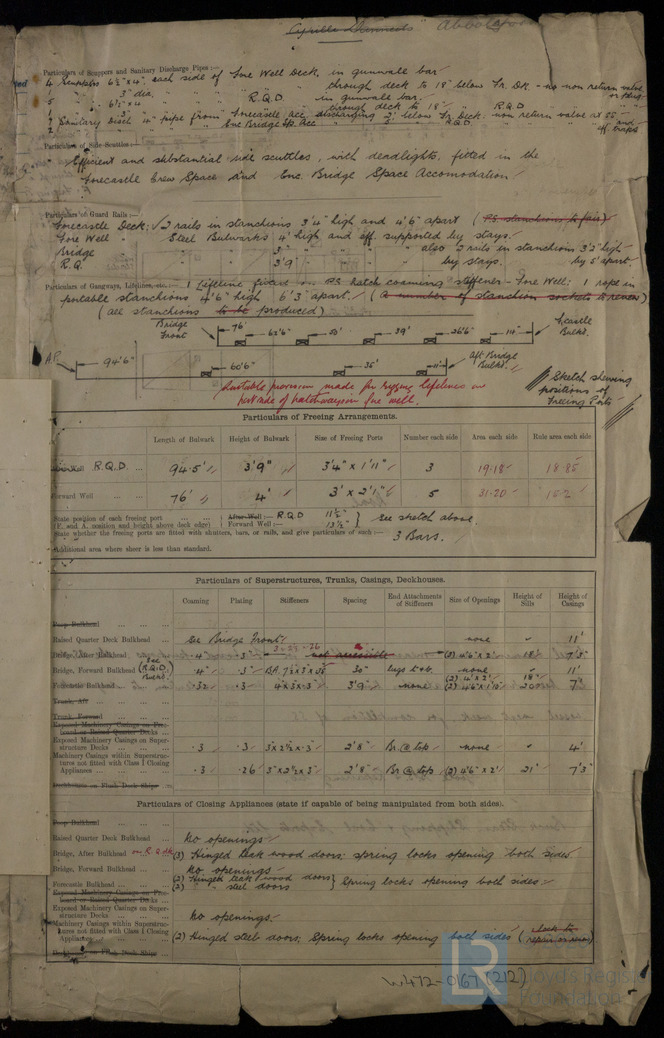 "Cyrille Danneels" Abbot
Particulars of Scuppers and Sanitary Discharge Pipes :—
4 Scuppers 6½" x 4", each side of Fore Well Deck, in gunwall bar
3" dia. through deck to 18" below Fr. Dk. - no non return valve
5 6½" x 4" R.Q.D. in gunwall bar
3" through deck to 18" R.Q.D.
Sanitary Disch 4" pipe from Forecastle Acc, discharging 3' below Fr. Deck. non return valve at SS
Enc Bridge Sp. Acc R.Q.D. and
Particulars of Side Scuttles :—
Efficient and substantial side scuttles, with deadlights, fitted in the
Forecastle Crew Space and Enc. Bridge Space Accomodation
Particulars of Guard Rails :—
Forecastle Deck: 2 rails in stanchions 3'4" high and 4'6" apart (P.S. stanchions to fair)
Fore Well " Steel Bulwarks 4' high and eff. supported by stays.
Bridge " " " 3' " " " also 2 rails in stanchions 3'2" high
R.Q. " " " 3'9" " by stays. by 5' apart
Particulars of Gangways, Lifelines, etc. :— 1 Lifeline fitted on hatch coaming stiffener. Fore Well: 1 rope in
portable stanchions 4'6" high 6'3" apart. (A number of stanchion sockets to renew)
(all stanchions to be produced)
Bridge Front 76' 39' 26'6" 110' F'castle Bulkd.
A.P. 94'6" 60'6" 35' 11' aft Bridge Bulkd.
Sketch shewing positions of Freeing Ports
Suitable provision made for rigging lifelines on
port side of hatchways in fore well.
Particulars of Freeing Arrangements.
Length of Bulwark Height of Bulwark Size of Freeing Ports Number each side Area each side Rule area each side
R.Q.D. ... 94.5' 3'9" 3'4" x 1'11" 3 19.15 18.85
Forward Well ... ... 76' 4' 3' x 2'1" 5 31.20 15.2
State position of each freeing port ... ... After Well :— R.Q.D 11½" } See sketch above.
(F. and A. position and height above deck edge) Forward Well :— 13½"
State whether the freeing ports are fitted with shutters, bars, or rails, and give particulars of such :— 3 Bars.
Additional area where sheer is less than standard.
Particulars of Superstructures, Trunks, Casings, Deckhouses.
Coaming Plating Stiffeners Spacing End Attachments of Stiffeners Size of Openings Height of Sills Height of Casings
Poop Bulkhead ... ... ...
Raised Quarter Deck Bulkhead ... See Bridge Front none " 11'
Bridge, After Bulkhead ... .4" .3" 3 x 2½ x .26 not accessible (3) 4'6" x 2' 18" 7'3"
Bridge, Forward Bulkhead (See R.Q.D. Bulkd.) .4" .3" B.A. 7½ x 3 x .35 30" lugs t & b. none " 11'
Forecastle Bulkhead ... .32 .3 4 x 3 x .3" 3'9" none (2) 4' x 2' 18" (2) 4'6" x 1'10" 20" 7'
Trunk, Aft ... ... ...
Trunk, Forward ... ...
Exposed Machinery Casings on Freeboard or Raised Quarter Decks ...
Exposed Machinery Casings on Superstructure Decks ... ... .3 .3 3 x 2½ x .3 2'8" Br. @ top none " 4'
Machinery Casings within Superstructures not fitted with Class 1 Closing Appliances ... .3 .26 3" x 2½ x .3" 2'8" Br. @ top (2) 4'6" x 2' 21" 7'3"
Deckhouses on Flush Deck Ships ...
Particulars of Closing Appliances (state if capable of being manipulated from both sides).
Poop Bulkhead ... ... ...
Raised Quarter Deck Bulkhead ... No openings
Bridge, After Bulkhead on R.Q.dk (3) Hinged Teak wood doors; spring locks opening both sides
Bridge, Forward Bulkhead ... No openings
Forecastle Bulkhead ... (2) Hinged teak wood doors (2) " steel doors } Spring locks opening both sides
Exposed Machinery Casings on Freeboard or Raised Quarter Decks ...
Exposed Machinery Casings on Superstructure Decks ... ... No openings
Machinery Casings within Superstructures not fitted with Class 1 Closing Appliances ... (2) Hinged steel doors; Spring locks opening both sides (lock to repair or renew)
Deckhouses on Flush Deck Ships ...
W472-0167 (2|2)
LR Lloyd's Register Foundation